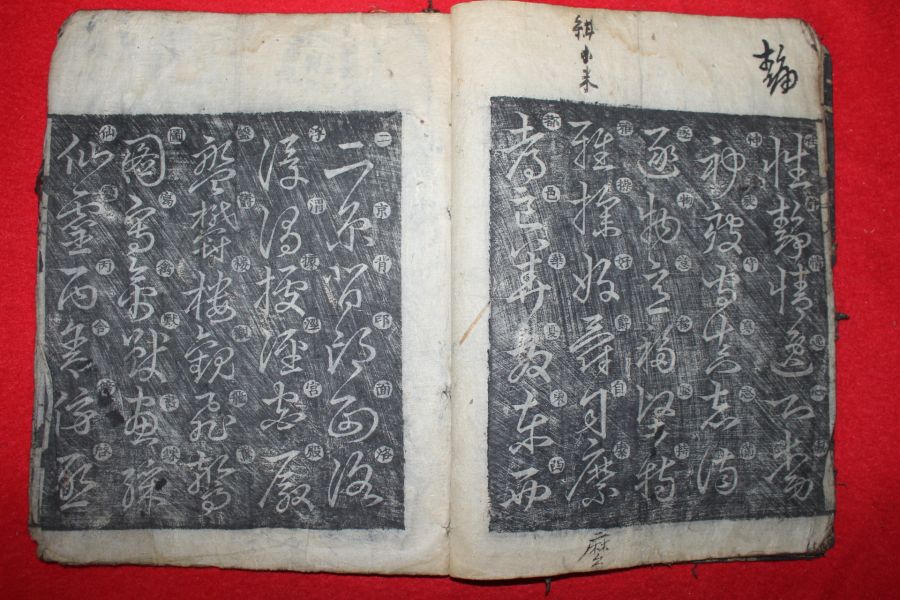 靜
性靜情逸心動
神疲守眞志滿
逐物意移堅持
雅操好爵自縻
都邑華夏東西
二京背邙面洛
浮渭據涇宮殿
盤鬱樓觀飛驚
圖寫禽獸畫綵
仙靈丙舍傍啓